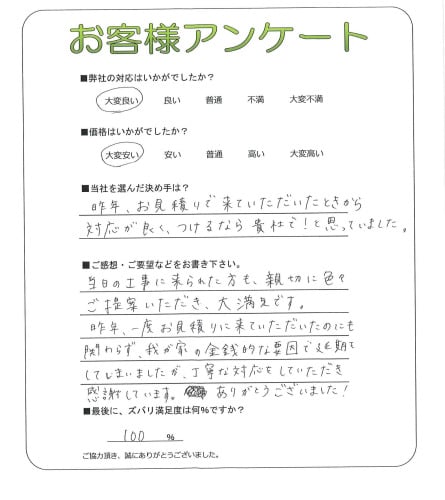 お客様アンケート
■弊社の対応はいかがでしたか？
大変良い 良い 普通 不満 大変不満
■価格はいかがでしたか？
大変安い 安い 普通 高い 大変高い
■当社を選んだ決め手は？
昨年、お見積りで来ていただいたときから
対応が良く、つけるなら貴社で！と思っていました。
■ご感想・ご要望などをお書き下さい。
当日の工事に来られた方も、親切に色々
ご提案いただき、大満足です。
昨年、一度お見積りに来ていただいたのにも
関わらず、我が家の金銭的な要因で延期て
してしまいましたが、丁寧な対応をしていただき
感謝しています。 ありがとうございました！
■最後に、ズバリ満足度は何%ですか？
100 %
ご協力頂き、誠にありがとうございました。